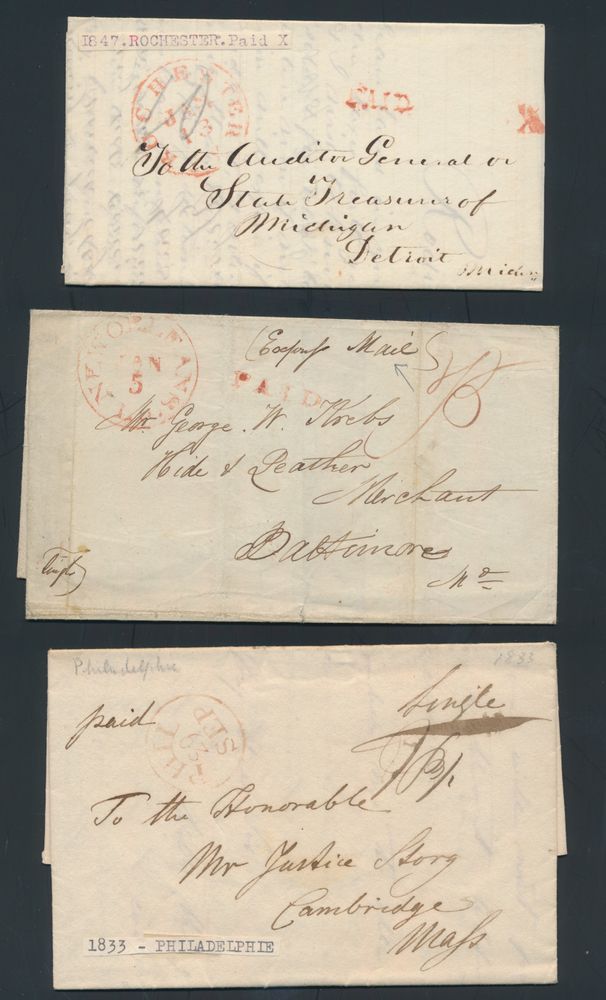 1847.ROCHESTER.Paid X
ROCHESTER
PAID
X
To the Auditor General or
State Treasurer of
Michigan
Detroit
Michn
NEW ORLEANS
JAN
5
(Express Mail)
PAID
Mr. George W. Krebs
Hide & Leather
Merchant
Baltimore
Md
Philadelphie
1833
paid
Single
PHIL
SEP
To the Honorable
Mr Justice Story
Cambridge
Mass
1833 - PHILADELPHIE